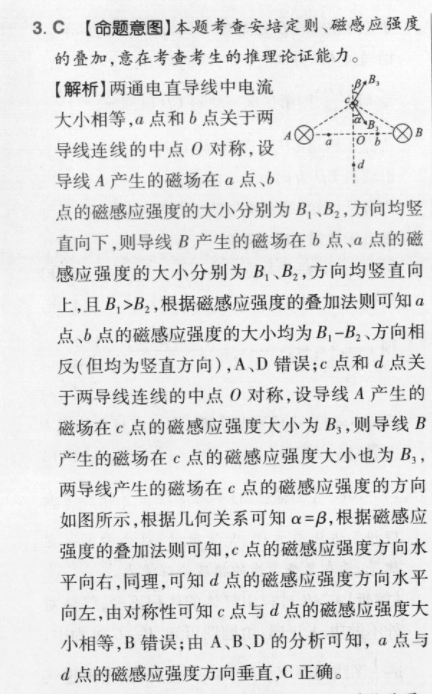 3. C 【命题意图】本题考查安培定则、磁感应强度
的叠加,意在考查考生的推理论证能力。
【解析】两通电直导线中电流
大小相等,a 点和 b 点关于两
导线连线的中点 O 对称,设
导线 A 产生的磁场在 a 点、b
点的磁感应强度的大小分别为 B₁、B₂,方向均竖
直向下,则导线 B 产生的磁场在 b 点、a 点的磁
感应强度的大小分别为 B₁、B₂,方向均竖直向
上,且 B₁>B₂,根据磁感应强度的叠加法则可知 a
点、b 点的磁感应强度的大小均为 B₁-B₂、方向相
反(但均为竖直方向),A、D 错误;c 点和 d 点关
于两导线连线的中点 O 对称,设导线 A 产生的
磁场在 c 点的磁感应强度大小为 B₃,则导线 B
产生的磁场在 c 点的磁感应强度大小也为 B₃,
两导线产生的磁场在 c 点的磁感应强度的方向
如图所示,根据几何关系可知 α=β,根据磁感应
强度的叠加法则可知,c 点的磁感应强度方向水
平向右,同理,可知 d 点的磁感应强度方向水平
向左,由对称性可知 c 点与 d 点的磁感应强度大
小相等,B 错误;由 A、B、D 的分析可知, a 点与
d 点的磁感应强度方向垂直,C 正确。
β B₃
c
α B₃
A a O b B
d